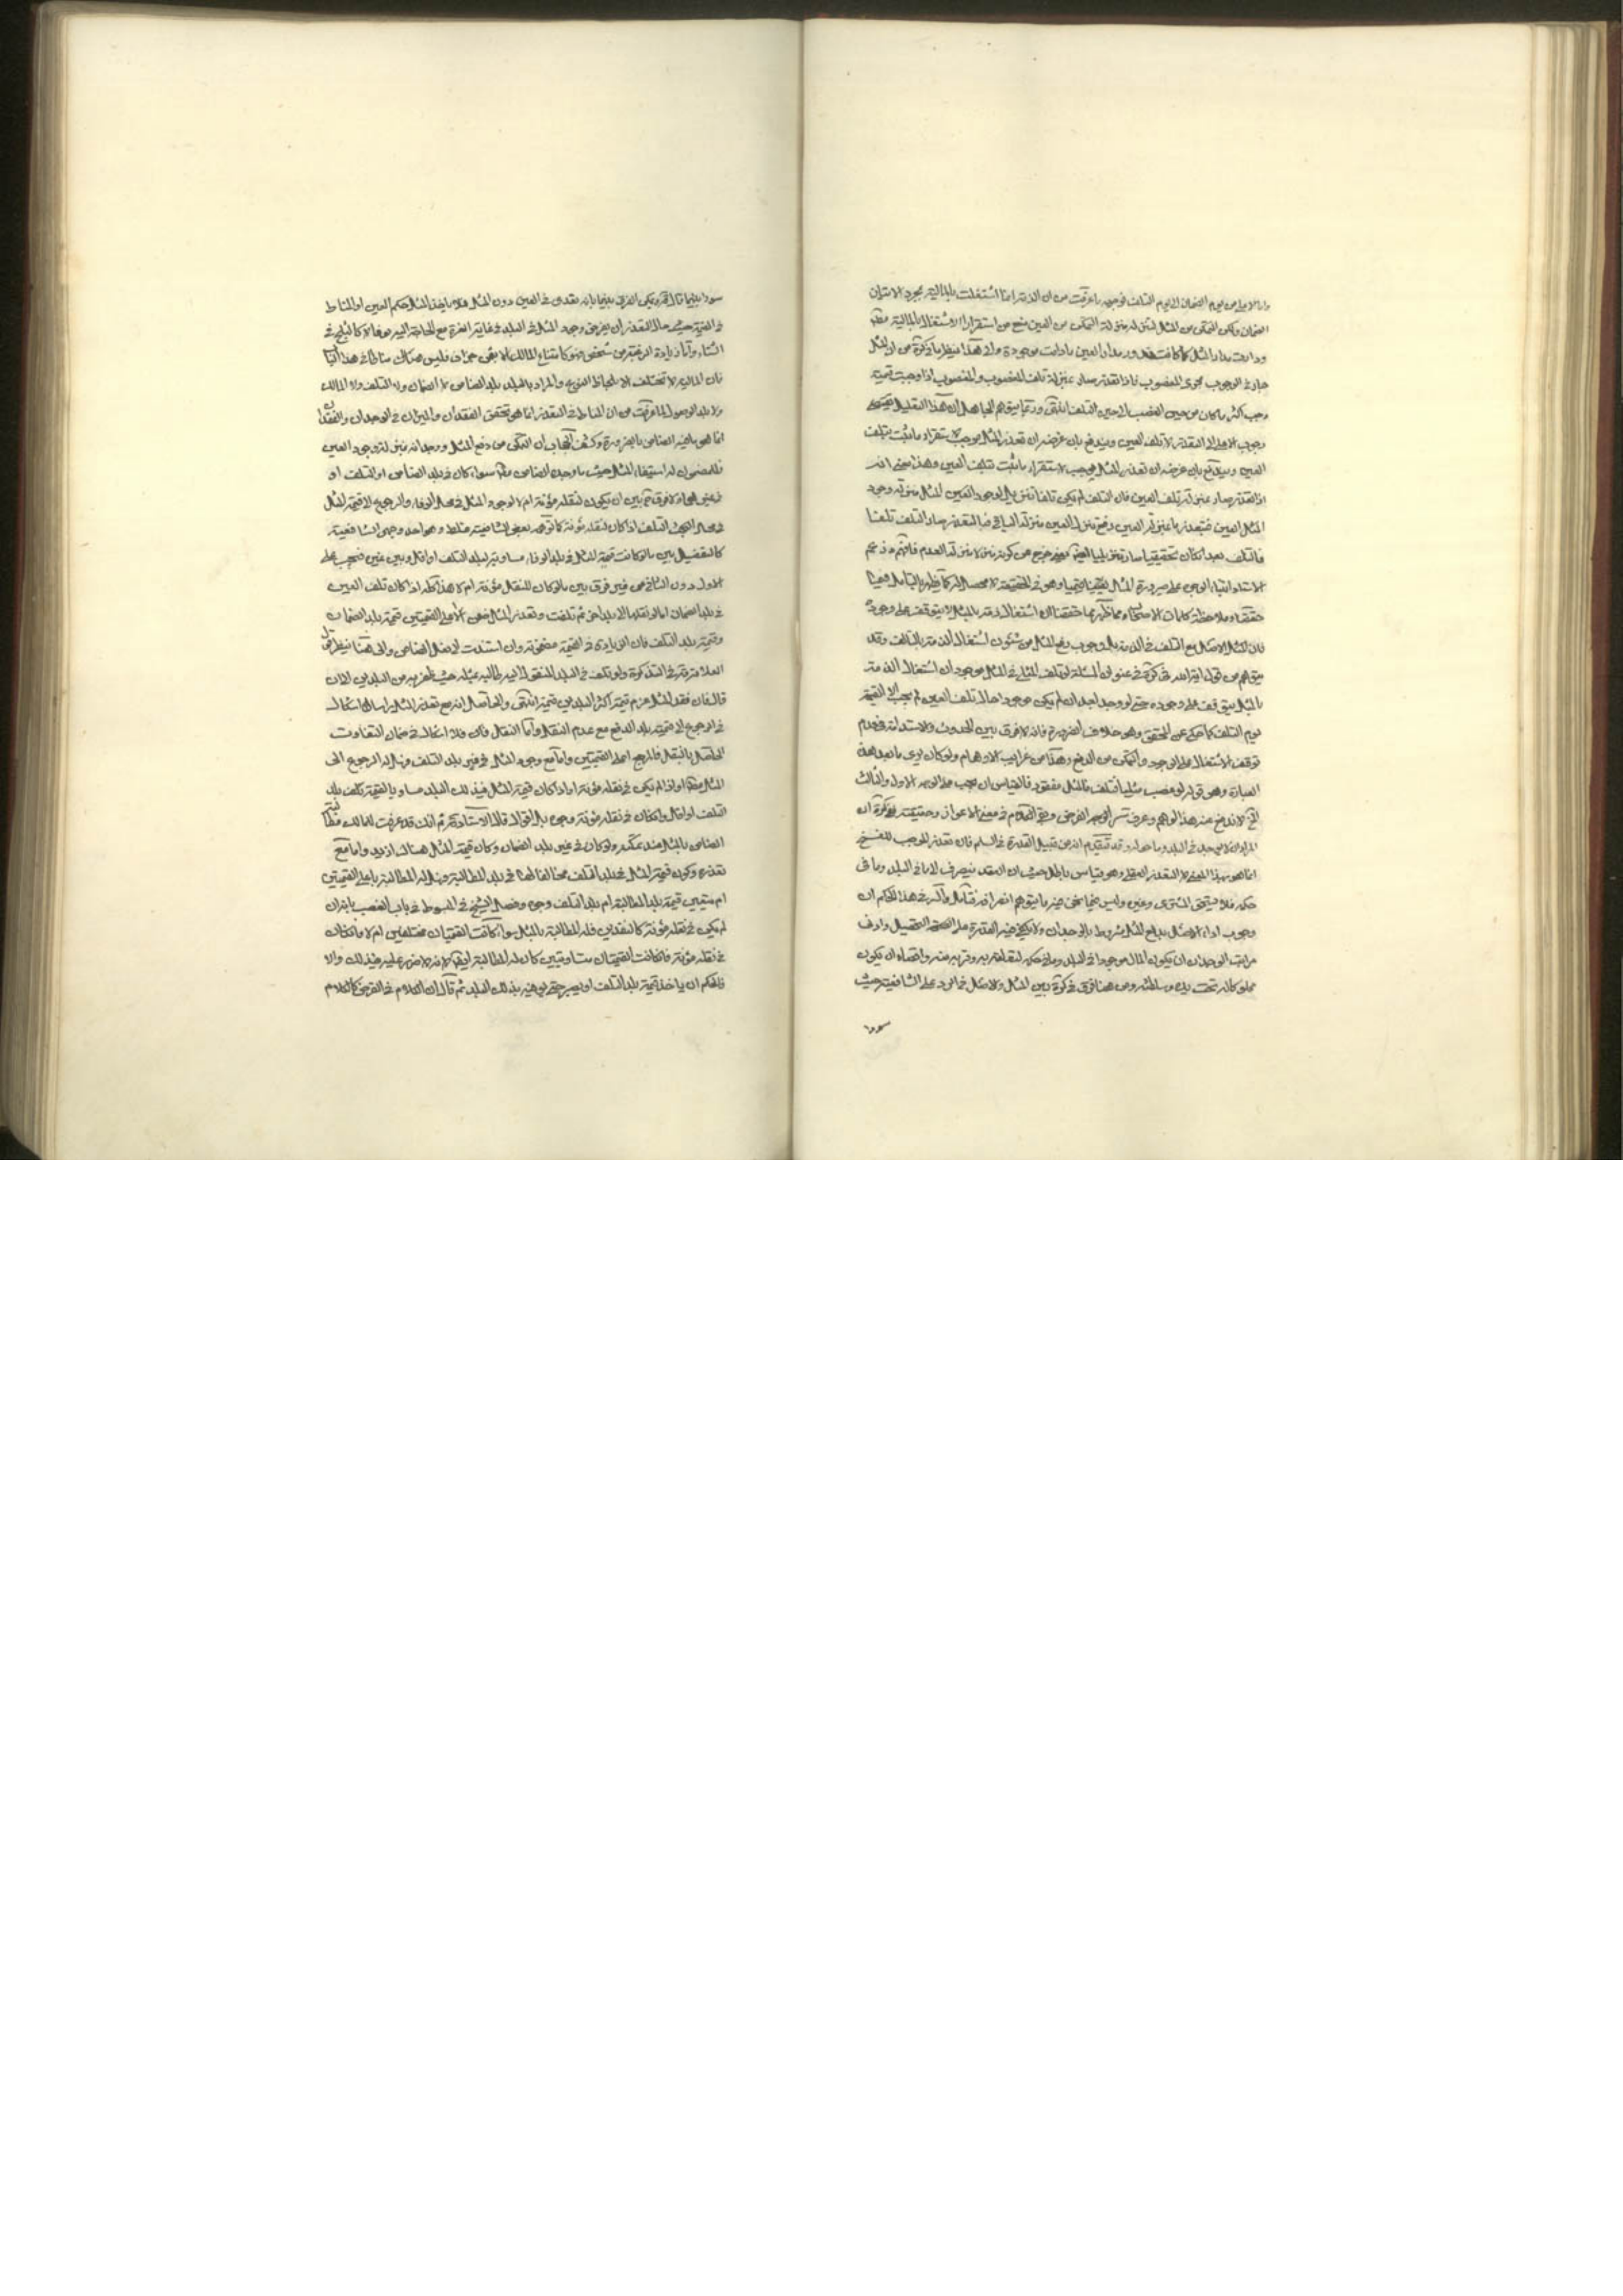 واما الاعلى من يوم الضمان الى يوم التلف فوجهه ما عرفت من ان الذمة انما اشتغلت بالمالية بمجرد الاستيلاء
الضمان ولكن التمكن من المثل لتنزله منزلة التمكن من العين منع من استقرار الاشتغال بالمالية
ودارت مدار المثل كما كانت تدور مدار العين ما دامت موجودة والى هذا ينظر ما ذكره من ان المثل
جار في الوجوب مجرى المغصوب فاذا تعذر صار بمنزلة تلف المغصوب والمغصوب اذا وجبت قيمته
وجب اكثر ما كان من حين الغصب الى حين التلف انتهى وربما يتوهم الجاهل ان هذا التعليل يقتضي
وجوب الاعلى الى التعذر لا تلف العين ويندفع بان غرضه ان تعذر المثل يوجب استقرار ما ثبت بتلف
العين ويندفع بان غرضه ان تعذر المثل يوجب استقرار ما ثبت بتلف العين وهذا معنى انه
اذا تعذر صار بمنزلة تلف العين فان التلف لم يكن تلفا تنزيلا لوجود العين المثل منزلة وجود
المثل العين فبتعذر ما بمنزلة العين
فالتلف بعد ان كان تحقيقيا صار
الاستاد
حققناه وملاحظة كلمات الاصحاب ومما ظهر بما حققنا ان اشتغال الذمة بالمثل لا يتوقف على وجوده
فان المثل الاصل مع التلف في الذمة بل وجوب دفع المثل من شئون اشتغال الذمة بالتالف وقد
يتوهم من قوله في التذكرة في عنوان المسئلة لو تلف المثلي والمثل موجود ان اشتغال الذمة
بالمثل يتوقف على وجوده حتى لو وجد بعد ان لم يكن موجودا حال تلف العين لم يجب الا القيمة
يوم التلف كما حكي عن المحقق وهو خلاف الضرورة فانه لا فرق بين الحدوث والاستدامة في عدم
توقف الاشتغال على الوجود والتمكن من الدفع وهذا من غرايب الاوهام ولو كان يرى ما بعد هذه
العبارة وهو قوله لو غصب مثليا فتلف والمثل مفقود فالقياس ان يجب على الوجه الاول والثالث
الخ لاندفع عنه هذا الوهم وعرف سر الوجه
المراد ان لا يوجد في البلد وما حوله وقد تقدم انه من قبيل القدرة في السلم فان تعذره الموجب للفسخ
انما هو بهذا المعنى لا التعذر العقلي وهو قياس باطل حيث ان العقد ينصرف الى ما في البلد وما في
حكمه فلا يستحق المشتري غيره وليس فيما نحن فيه ما يتوهم انصرافه
وجوب اداء الاصل بدفع المثل مشروط بالوجدان ولا يكفي فيه القدرة على التحصيل وادنى
مراتب الوجدان ان يكون المال موجودا في البلد وما في حكمه لتقلته به وقربه منه واقصاه ان يكون
مملوكا له تحت يده وسلطنته ومن هنا فرق في التذكرة بين المثل والاصل فيما اورد على الشافعية حيث
سووا
سووا بينهما قال ويمكن الفرق بينهما بانه تعدى في العين دون المثل فلا ياخذ المثل حكم العين او المناط
في القيمة حيث حال التعذر ان يفرض وجود المثل في البلد في غاية العزة مع الحاجة اليه عرفا لا كالثلج في
الشتاء واما زيادة الرغبة من شخص
فان المالية لا تختلف الا بلحاظ النوع والمراد بالبلد بلد الضامن لا الضمان ولا التلف ولا المالك
ولا بلد الوصول لما عرفت من ان المناط في التعذر انما هو تحقق الفقدان والميزان في الوجدان والفقدان
انما هي بلد الضامن بالضرورة وكشف الحجاب ان التمكن من دفع المثل ووجدانه بمنزلة وجود العين
فللمضمون له استيفاء المثل حيث ما وجد الضامن سواء كان في بلد الضامن او التلف او
غيرهما ولا فرق بين ان يكون لنقله مؤنة ام لا لوجود المثل في محل الوفاء والرجوع الى قيمة المثل
في محل التلف اذا كان لنقله مؤنة كما توهمه بعض الشافعية غلط وهو احد وجهي الشافعية
كالتفصيل بين ما لو كانت قيمة المثل في بلد الوفاء مساوية لبلد التلف او اقل وبين غيره فيجب على
الاول دون الثاني من غير فرق بين ما لو كان للنقل مؤنة ام لا هذا كله اذا كان تلف العين
في بلد الضمان اما لو نقلها الى بلد اخر ثم تلفت وتعذر المثل فهي الاعلى القيمتين قيمة بلد الضمان
وقيمة بلد التلف فان الزيادة في القيمة مضمونة وان استندت الى فعل الضامن والى هذا ينظر قول
العلامة في التذكرة ولو تلف في البلد المنقول اليه طالبه بمثله حيث ظفر به من البلدين الان
قال فان فقد المثل غرم قيمة اكثر البلدين قيمة انتهى والحاصل انه مع تعذر المثل راسا لا اشكال
في الرجوع الى قيمة بلد الدفع مع عدم النقل واما النقل فان فلا اشكال في ضمان التفاوت
الحاصل بالنقل فالمرجع اعلى القيمتين واما مع وجود المثل في غير بلد التلف فهل له الرجوع الى
المثل مطلقا او اذا لم يكن في نقله مؤنة او اذا كان قيمة المثل في ذلك البلد مساويا لقيمته بلد
التلف او اقل وان كان في نقله مؤنة وجوه بل اقوال قال الاستاد ثم انك قد عرفت ان للمالك مطالبة
الضامن بالمثل عند تمكنه ولو كان في غير بلد الضمان وكان قيمة المثل هناك ازيد واما مع
تعذره وكون قيمة المثل في بلد التلف مخالفا لها في بلد المطالبة فهل له المطالبة باعلى القيمتين
ام يتعين قيمة بلد المطالبة ام بلد التلف وجوه وفصل الشيخ في المبسوط في باب الغصب بانه ان
لم يكن في نقله مؤنة كالنقدين فله المطالبة بالمثل سواء كانت القيمتان مختلفتين ام لا وان كان
في نقله مؤنة فان كانت القيمتان متساويتين كان له المطالبة ايضا لانه لا ضرر عليه في ذلك والا
فالحكم ان ياخذ قيمة بلد التلف او يصبر حتى يوفيه بذلك البلد ثم قال ان الكلام في القرض كالكلام